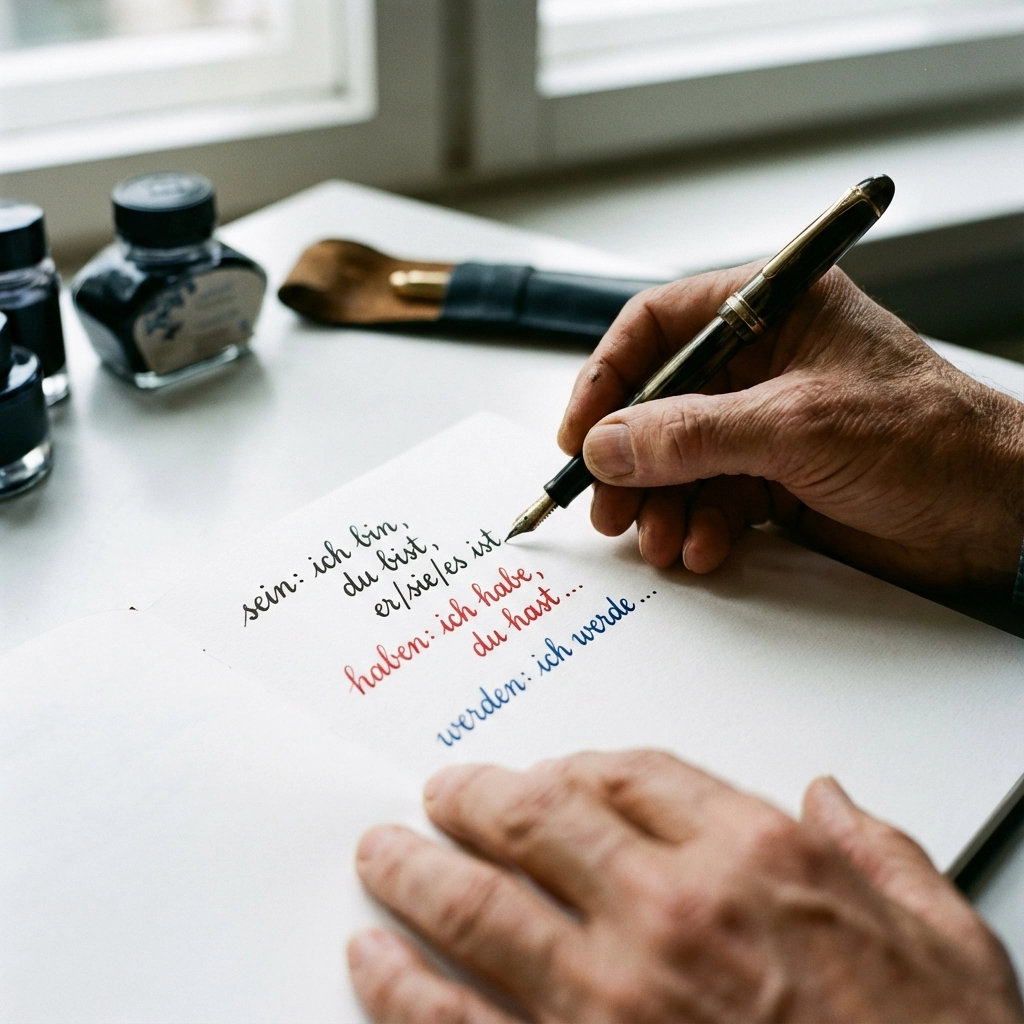 sein: ich bin,
du bist,
er/sie/es ist
haben: ich habe,
du hast...
werden: ich werde...